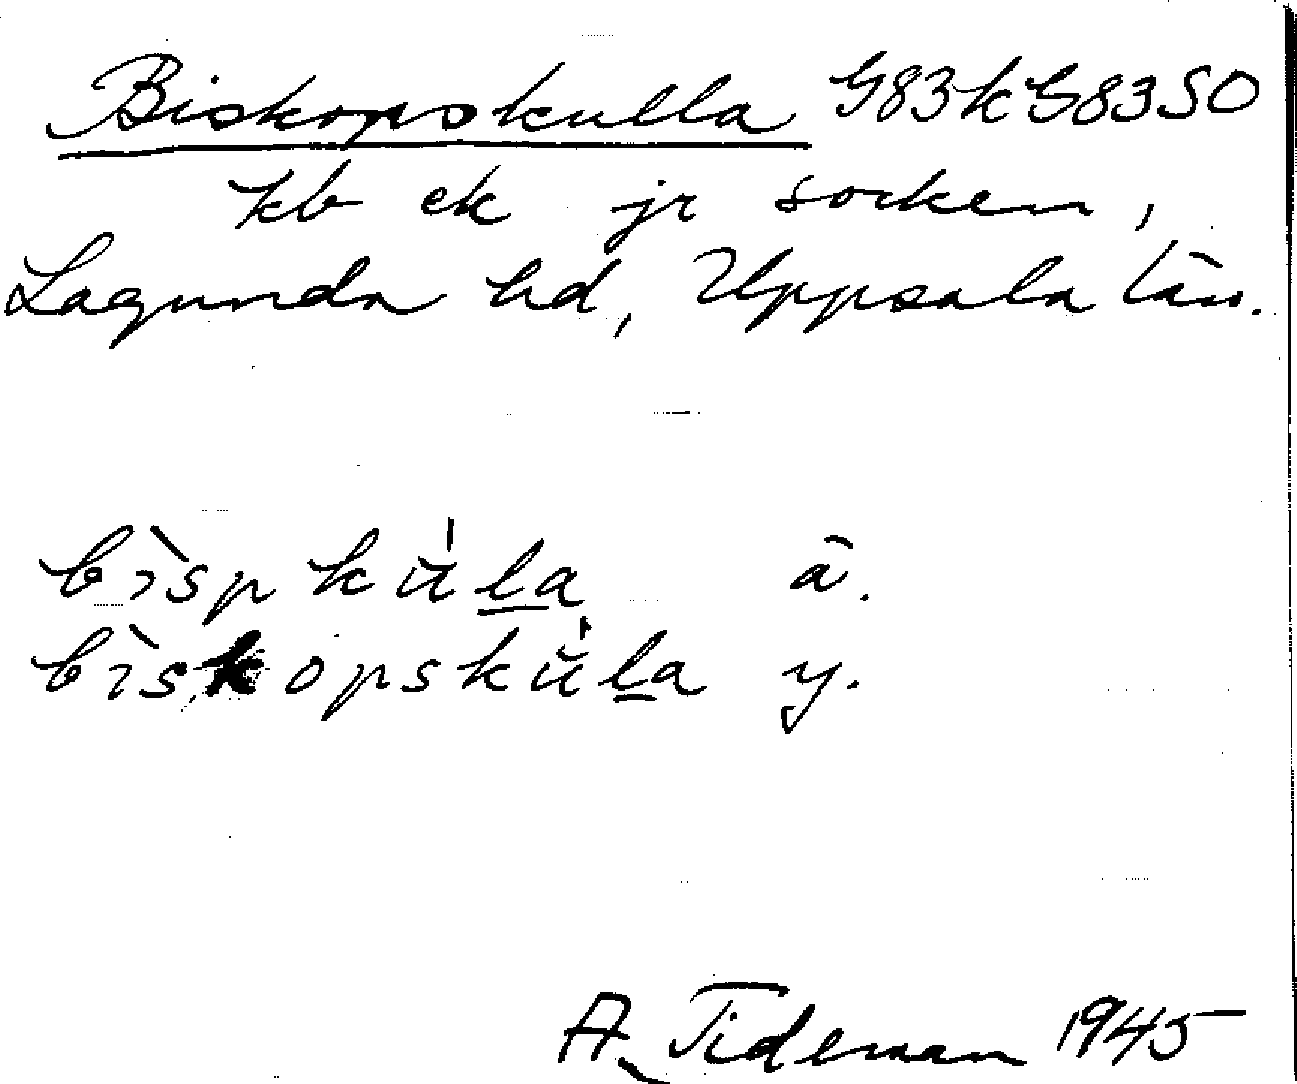 Biskopskulla G83k G83SO
kb ek jr socken,
Lagunda hd, Uppsala län.
bìspkù̍la ä.
bìskopskù̍la y.
A. Tideman 1945